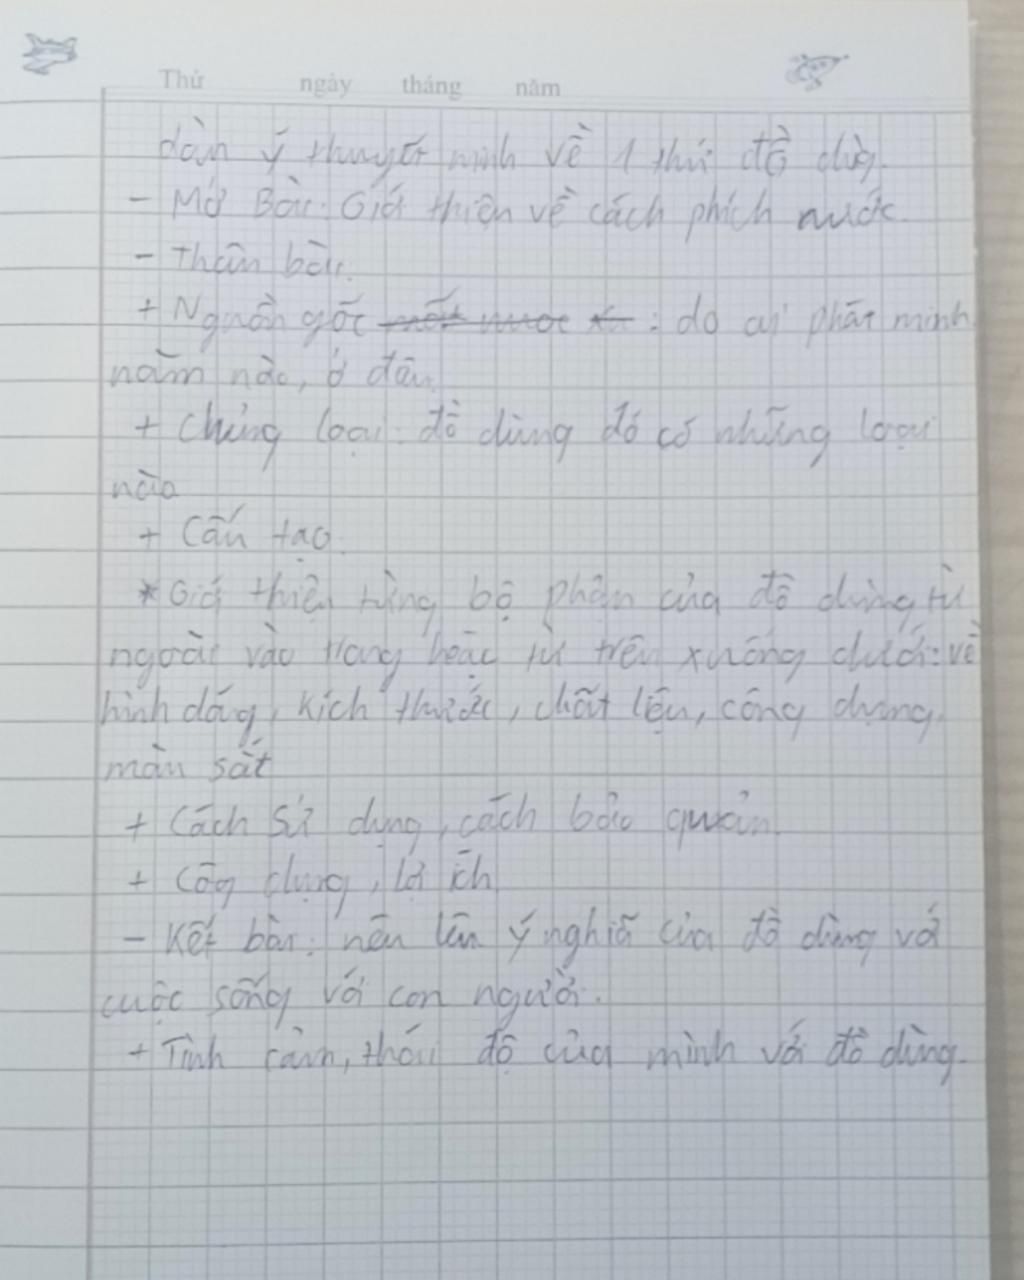 Thứ ngày tháng năm
dàn ý thuyết minh về 1 thứ đồ dùg.
- Mở Bài: Giới thiện về cách phích nước.
- Thân bài:
+ Nguồn gốc : do ai phát minh
năm nào, ở đâu
+ Chủng loại: đồ dùng đó có những loại
nào
+ Cấu tạo.
* Giới thiện từng bộ phận của đồ dùng từ
ngoài vào trong hoặc từ trên xuống dưới: về
hình dáng, kích thước, chất liệu, công dụng,
màn sắt
+ Cách sử dụng, cách bảo quản.
+ Côg dụng, lợi ích
- Kết bài: nêu lên ý nghiã của đồ dùng với
cuộc sống với con người.
+ Tình cảm, thái độ của mình với đồ dùng.